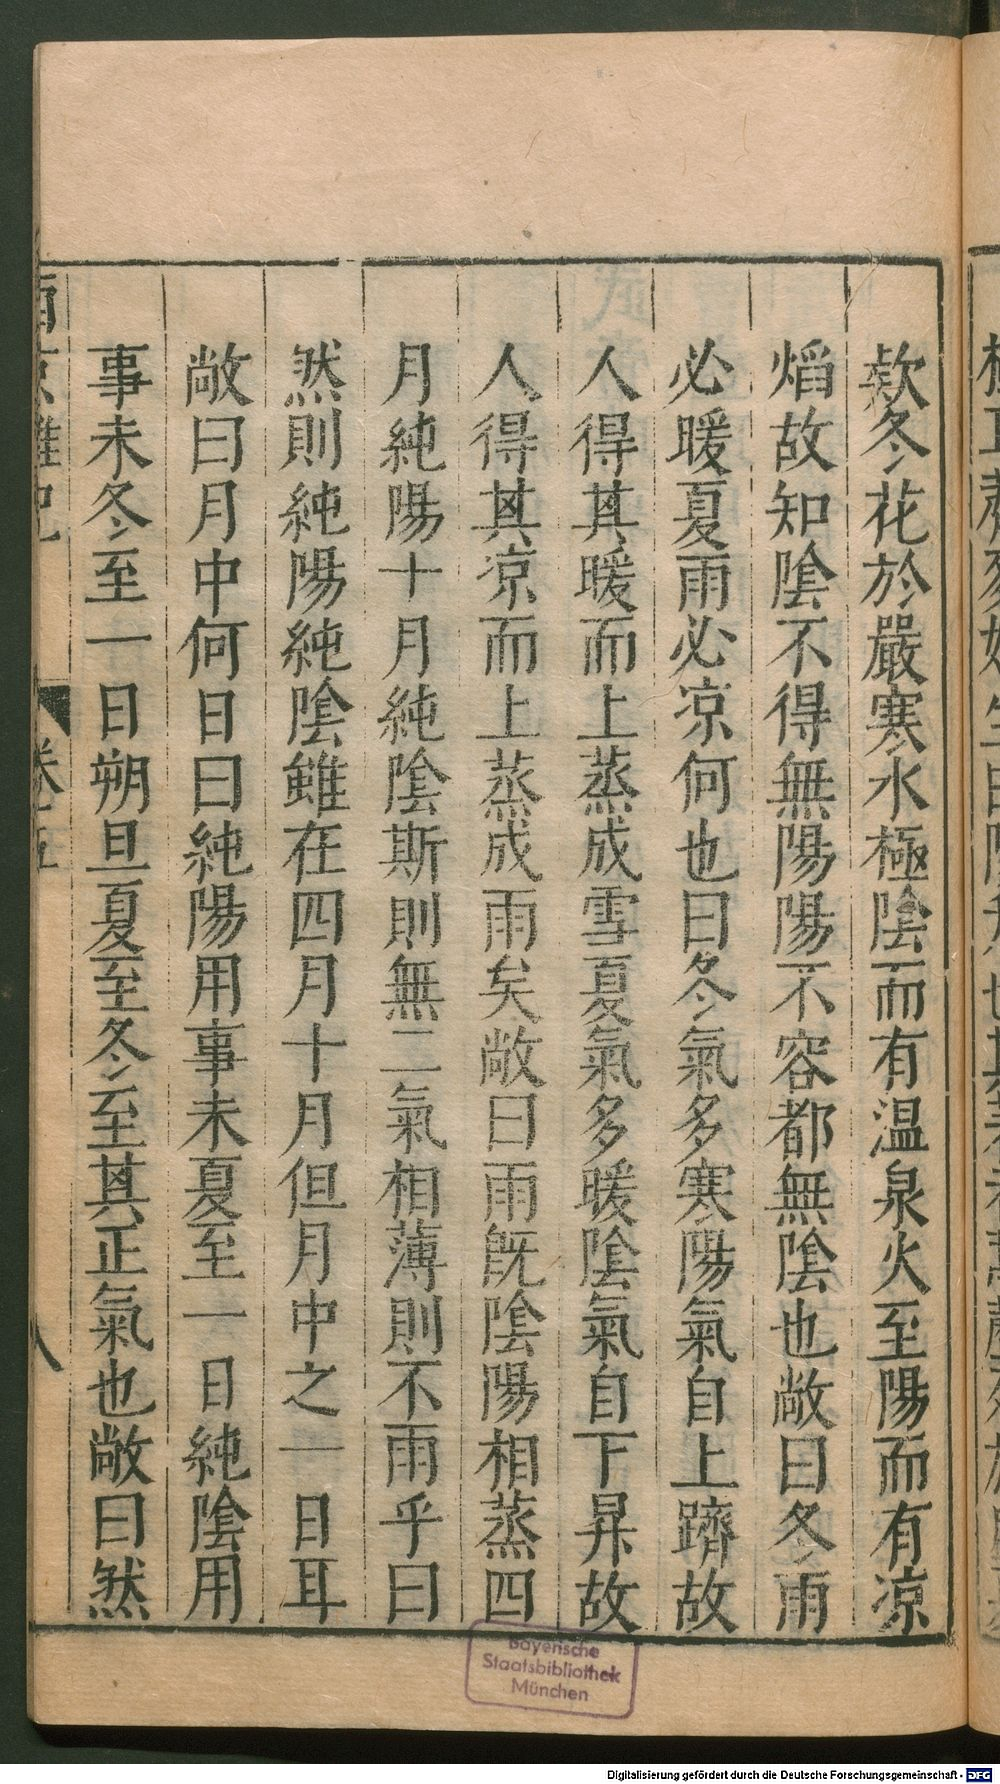 欵冬花於嚴寒水極陰而有温泉火至陽而有凉
熖故知陰不得無陽陽不容都無陰也敞曰冬雨
必暖夏雨必凉何也曰冬氣多寒陽氣自上躋故
人得其暖而上蒸成雪夏氣多暖陰氣自下昇故
人得其凉而上蒸成雨矣敞曰雨旣陰陽相蒸四
月純陽十月純陰斯則無二氣相薄則不雨乎曰
然則純陽純陰雖在四月十月但月中之一日耳
敞曰月中何日曰純陽用事未夏至一日純陰用
事未冬至一日朔旦夏至冬至其正氣也敞曰然
西京雜記 卷五 八
Bayerische
Staatsbibliothek
München
Digitalisierung gefördert durch die Deutsche Forschungsgemeinschaft - DFG